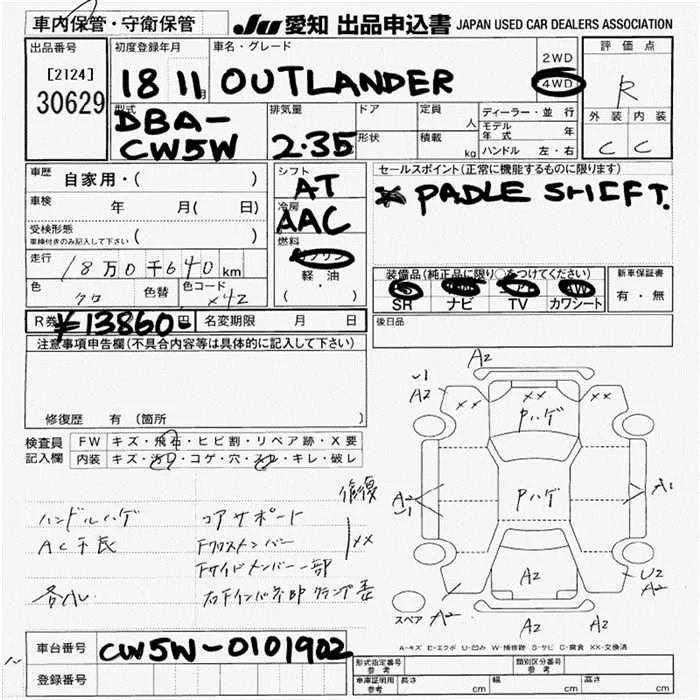 車内保管・守衛保管
JU 愛知 出品申込書 JAPAN USED CAR DEALERS ASSOCIATION
出品番号
[2124]
30629
初度登録年月
18 11 月
車名・グレード
OUTLANDER
2WD
4WD
評価点
R
外装 内装
C C
型式
DBA-
CW5W
排気量
2.35
ドア
形状
定員
人
積載
kg
ディーラー・並行
モデル年式 年
ハンドル 左・右
車歴 自家用・( )
車検 年 月( 日)
受検形態
車検付きのみ記入して下さい ( )
走行 18万0千640km
色 クロ 色替 色コード X42
シフト
AT
冷房
AAC
燃料
ガソリン
軽・油
( )
セールスポイント(正常に機能するものに限ります)
PADLE SHIFT.
装備品(純正品に限り○をつけてください)
SR ナビ TV カワシート
新車保証書
有・無
R券 ¥13860- 円 名変期限 月 日
後日品
注意事項申告欄(不具合内容等は具体的に記入して下さい)
修復歴 有(箇所 )
検査員
記入欄
FW キズ・飛石・ヒビ割・リペア跡・X要
内装 キズ・汚れ・コゲ・穴・スレ・キレ・破レ
修復
ハンドルハゲ コアサポート
AC不良 Fクロスメンバー XX
Fサイドメンバー一部
各小 右Fインパネ部 クランプ
A2
U1
A2
XX
XX
XX
Pハゲ
A2
U1
Pハゲ
A1
A2
A2
U2
A2
スペア
A2
A2
A-キズ E-エクボ U-凹み W-補修跡 S-サビ C-腐食 XX-交換済
車台番号 CW5W-0101902
登録番号
形式指定番号
参考
類別区分番号
参考
車庫証明用
参考
長さ cm 幅 cm 高さ cm